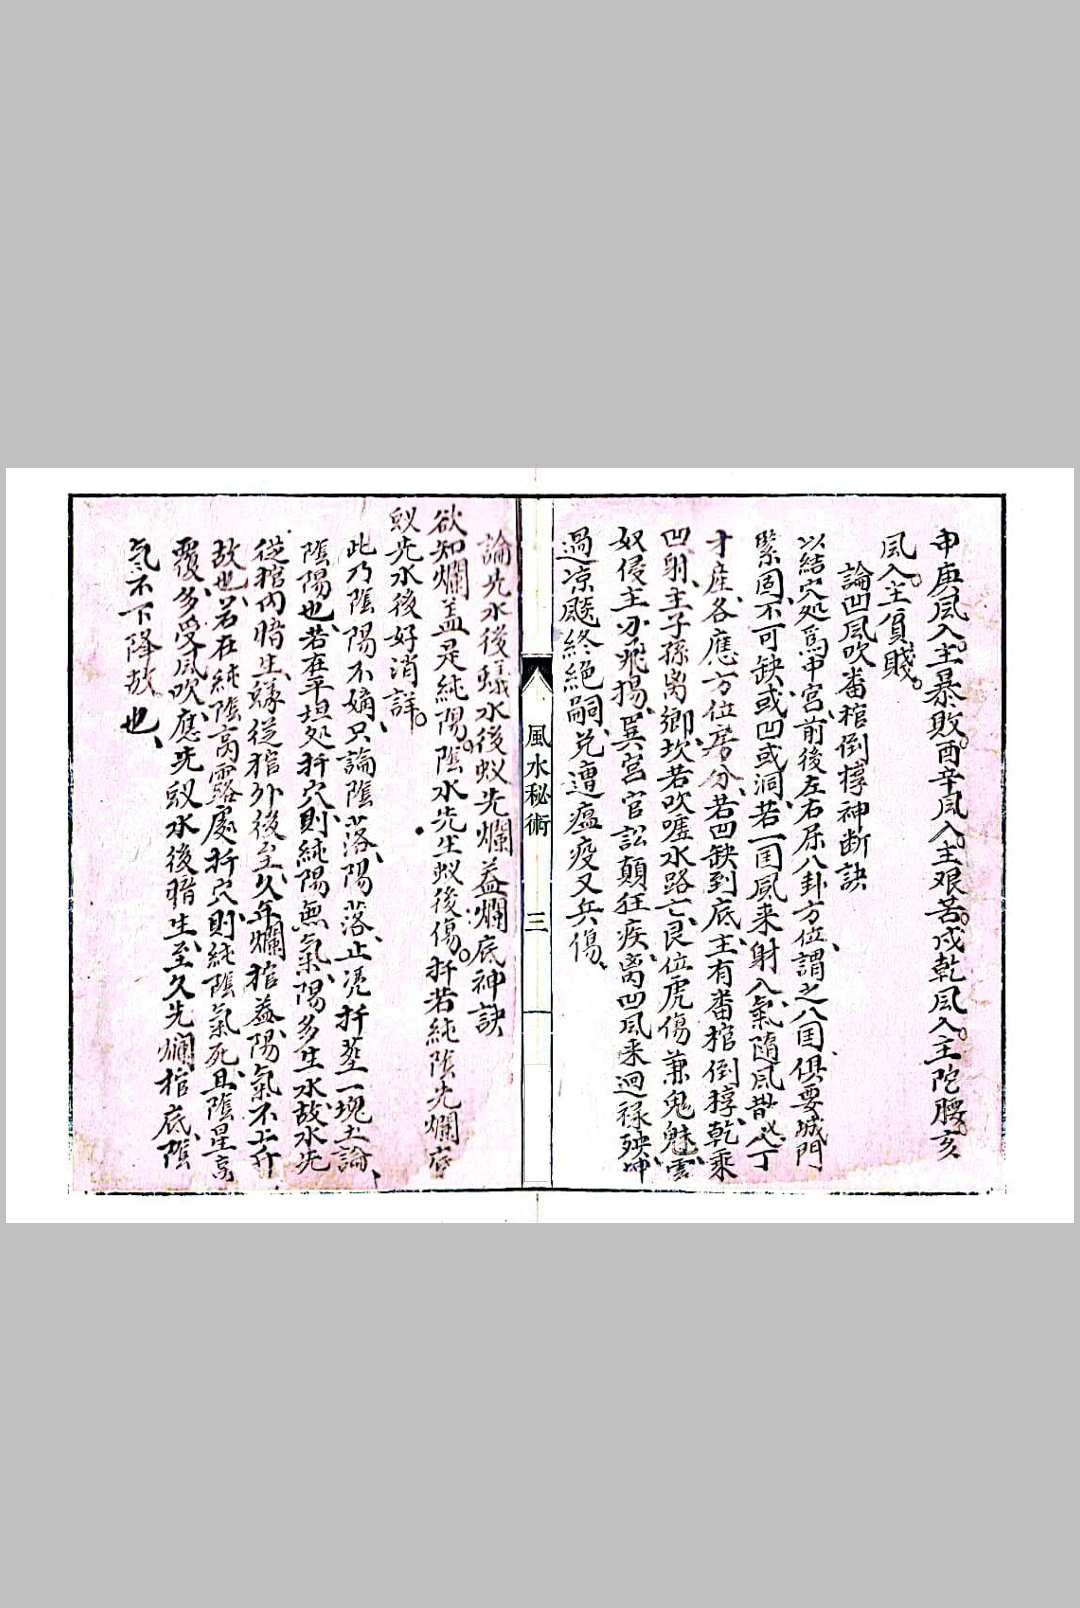 申庚风入主暴敗。酉辛风入。主艰苦。戍乾风入。主陀腰。亥
风入。主貧賤。
論凹風吹畨棺倒槨神断訣
以結穴処爲中宮、前後左右屎八卦方位、謂之八囯、俱要城門
緊固、不可缺、或凹或洞、若一囯風来射入、氣随风散、必丁
才産、各應方位房分、若凹缺到底、主有畨棺倒槨、乾乘
凹射、主子孫离鄉、坎若吹嘘水路亡、艮位虎傷兼鬼魅、雲
奴侵主、飛揚、巽宮官訟顛狂疾、离凹风来迴禄殃、坤
過凉颷終絕嗣、兊遭瘟疫又兵傷、
風水秘術
三
論先水後蟻水後蚁先爛盖爛底神訣
欲知爛盖是純陽。陰水先生蚁後傷。扦若純陰先爛底
蚁先水後好消詳。
此乃陰陽不媾、只論陰落陽落、止凴扦塟一塊土論、
陰陽也、若在平坦処扦穴、則純陽無氣、陽多生水、故水先
從棺内暗生、蟓從棺外後至、久年爛棺盖、陽氣不上升
故也、若在純陰高露處扦穴、則純陰氣死、且陰星高
露、多受风吹、應先蚁水後暗生、至久先爛棺底、陰
氣不下降故也、